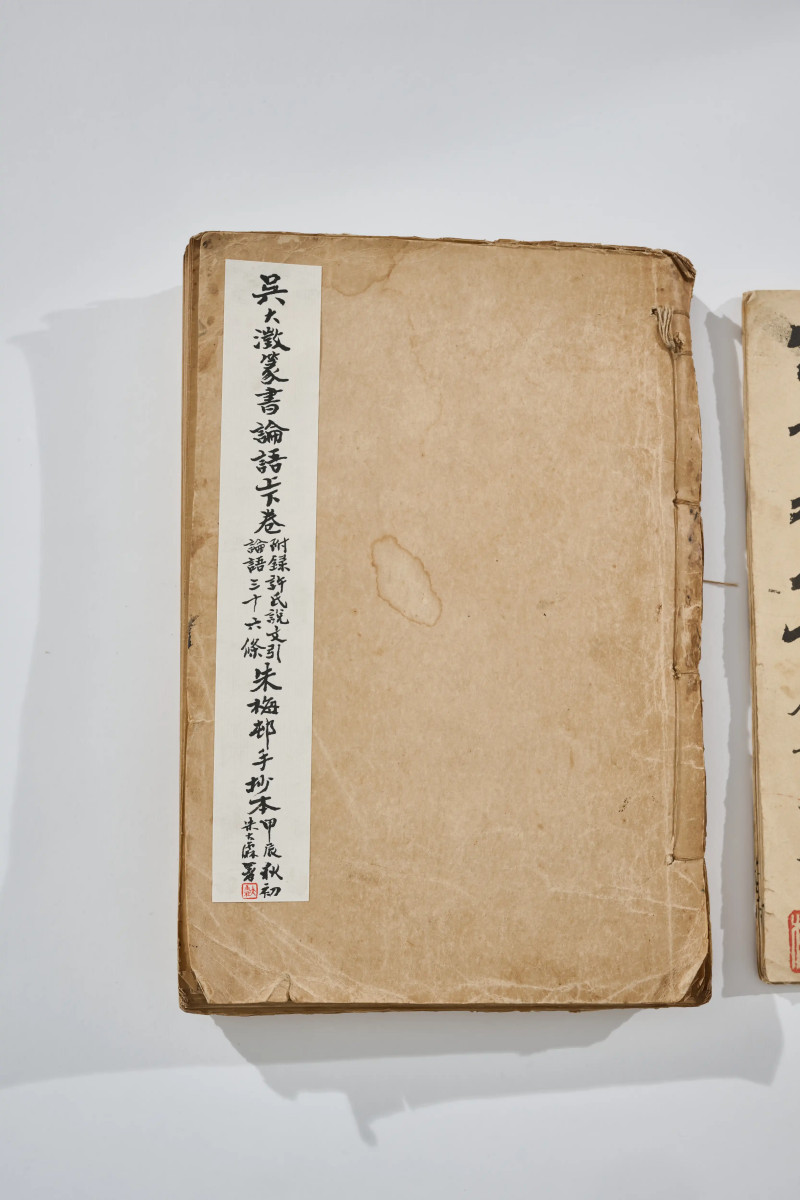 吳大澂篆書論語上下卷
附錄許氏說文引
論語三十六條
朱梅邨手抄本
甲辰秋初
朱大霖署